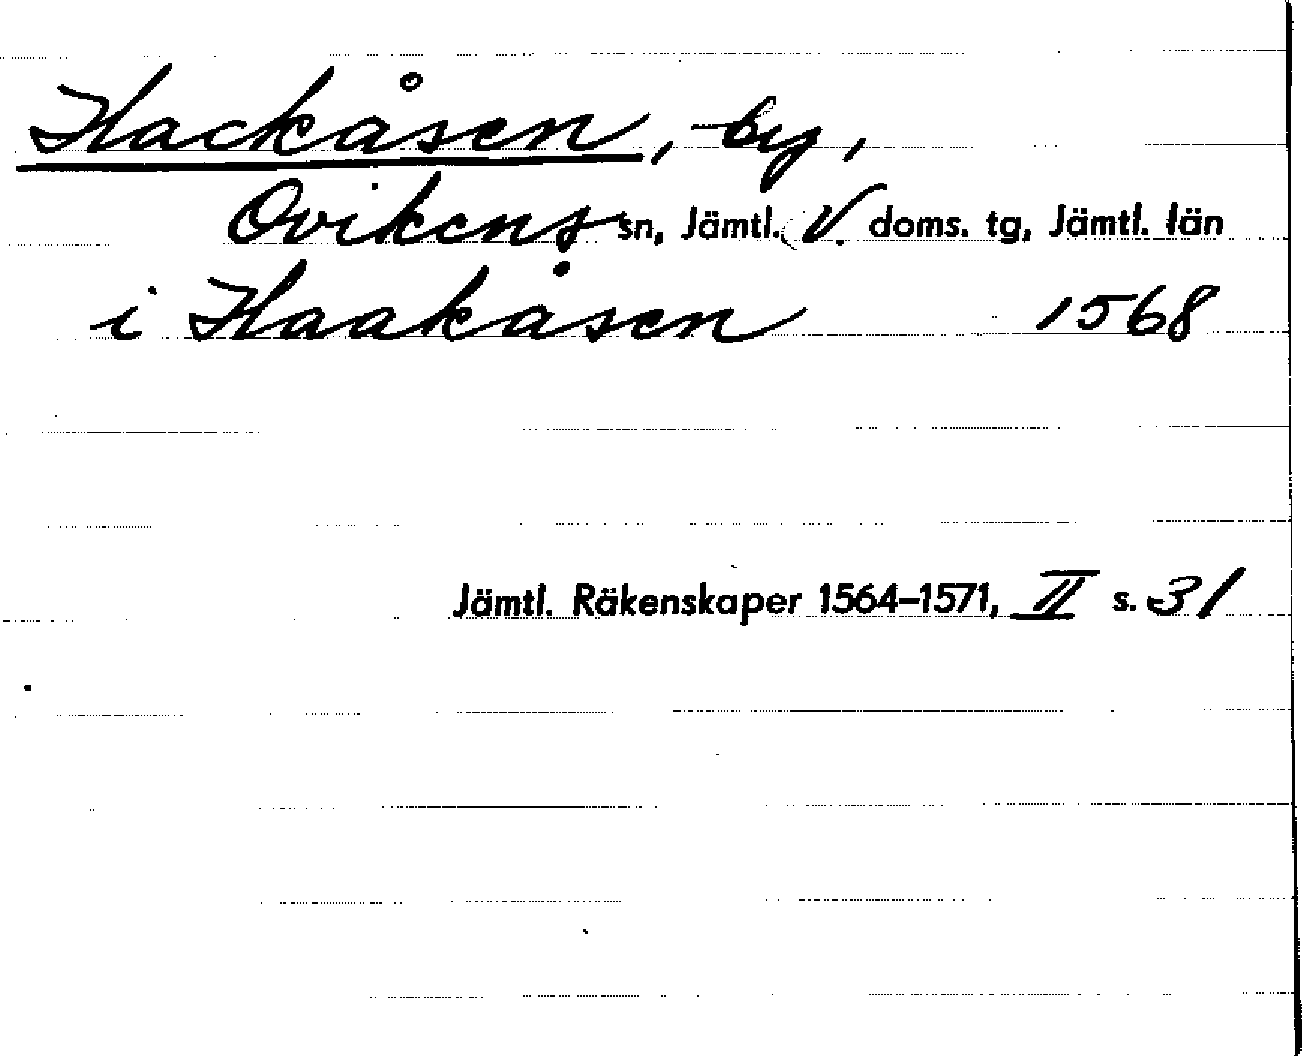 Hackåsen, by,
Ovikens sn, Jämtl. V. doms. tg, Jämtl. län
i Haakåsen 1568
Jämtl. Räkenskaper 1564–1571, II s. 31